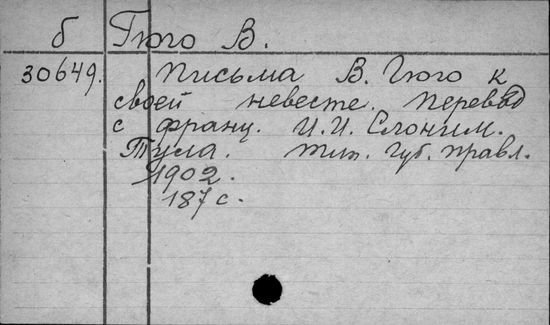 б Гюго В.
30649. Письма В. Гюго к
своей невесте. Перевод
с франц. И.И. Слоним.
Тула. тип. губ. правл.
1902.
187 с.